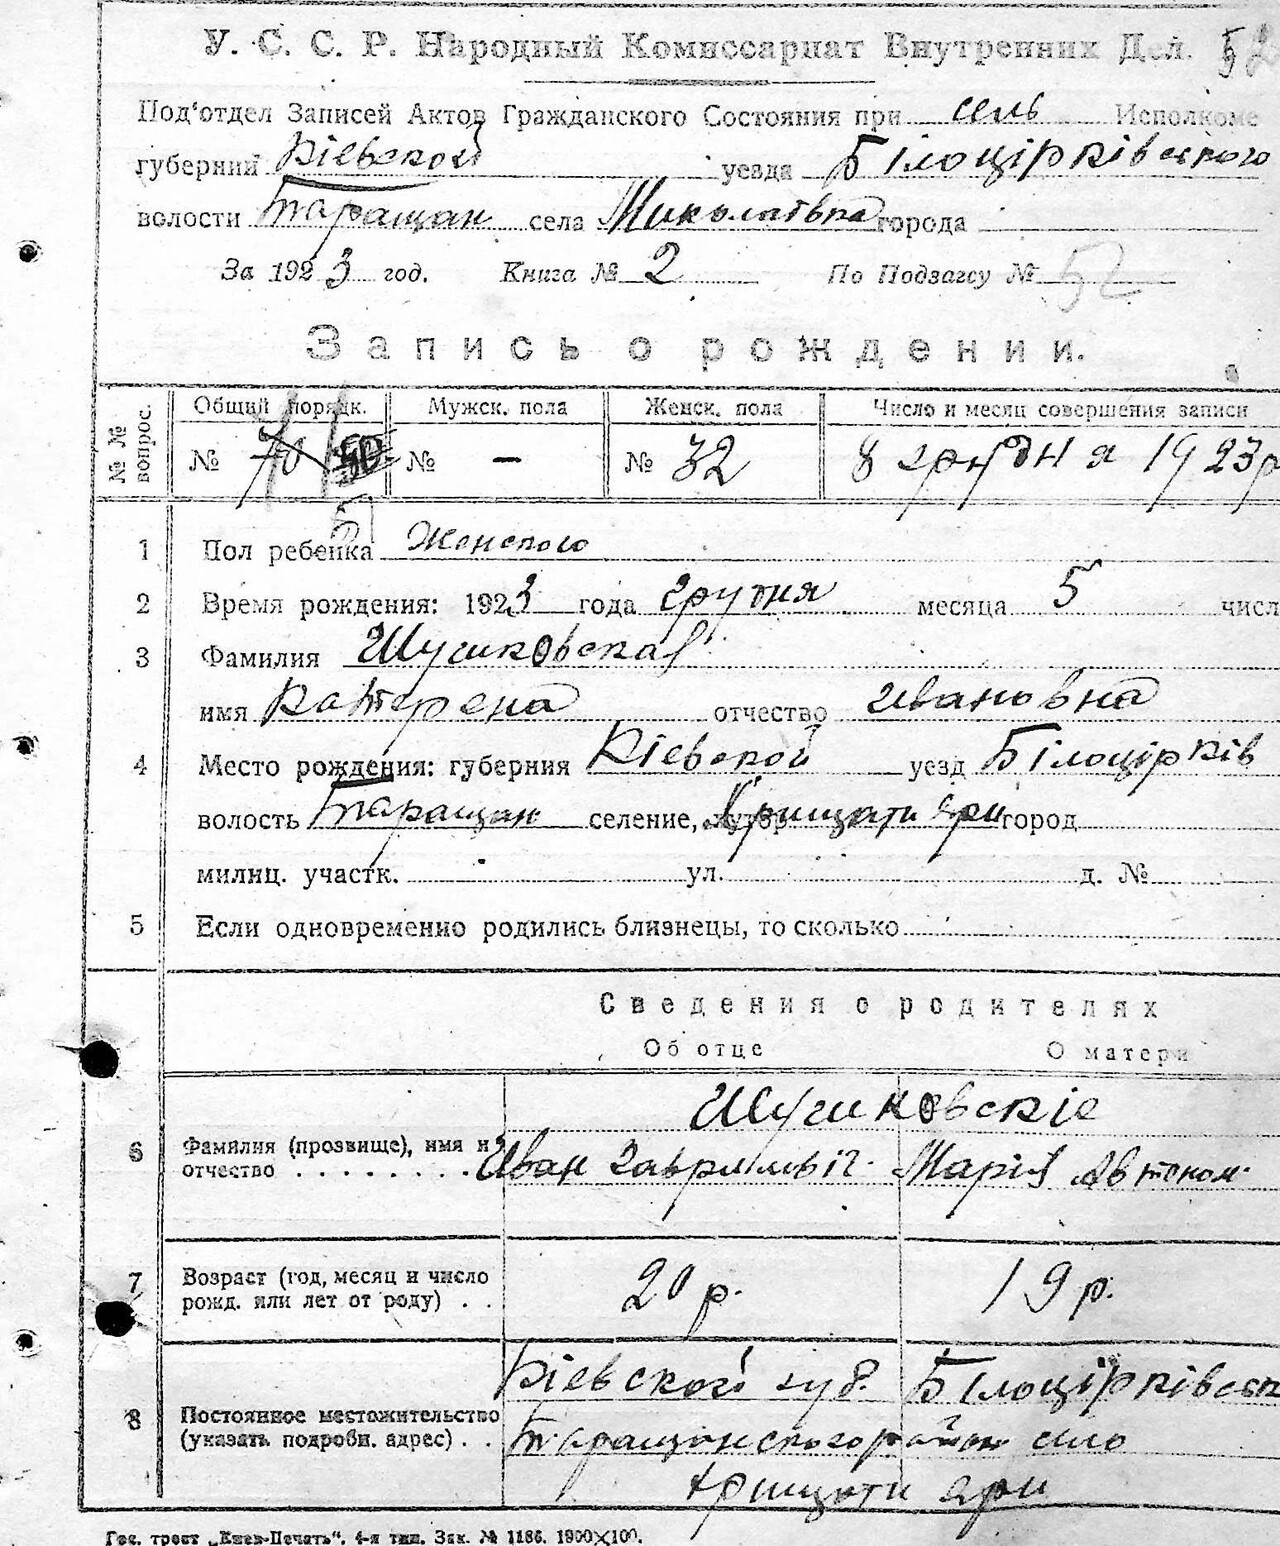 У. С. С. Р. Народный Комиссариат Внутренних Дел. 52
Под'отдел Записей Актов Гражданского Состояния при сель Исполкоме
губернии Кіевской уезда Білоцірківского
волости Таращан села Миколаївка города
За 1923 год. Книга № 2 По Подзагсу № 52
Запись о рождении.
№ № вопрос. Общий порядк. Мужск. пола Женск. пола Число и месяц совершения записи
№ 70 50 № – № 32 8 грудня 1923 р
51
1 Пол ребенка Женского
2 Время рождения: 1923 года грудня месяца 5 числ
3 Фамилия Шушковская
имя Катерена отчество Ивановна
4 Место рождения: губерния Кіевской уезд Білоцірків
волость Таращан селение, хутор Хрищати яри город
милиц. участк. ул. д. №
5 Если одновременно родились близнецы, то сколько
Сведения о родителях
Об отце О матери
Шушковскіе
6 Фамилия (прозвище), имя и отчество . . . . . . . . Иван Гаврилович Марія Автоном.
7 Возраст (год, месяц и число рожд. или лет от роду) . . 20 р. 19 р.
Кіевскої губ. Білоцірківск
8 Постоянное местожительство (указать подробн. адрес) . . Таращанского район село
Хрищати яри
Гос. трест „Киев-Печать“. 4-я тип. Зак. № 1186. 1900×100.